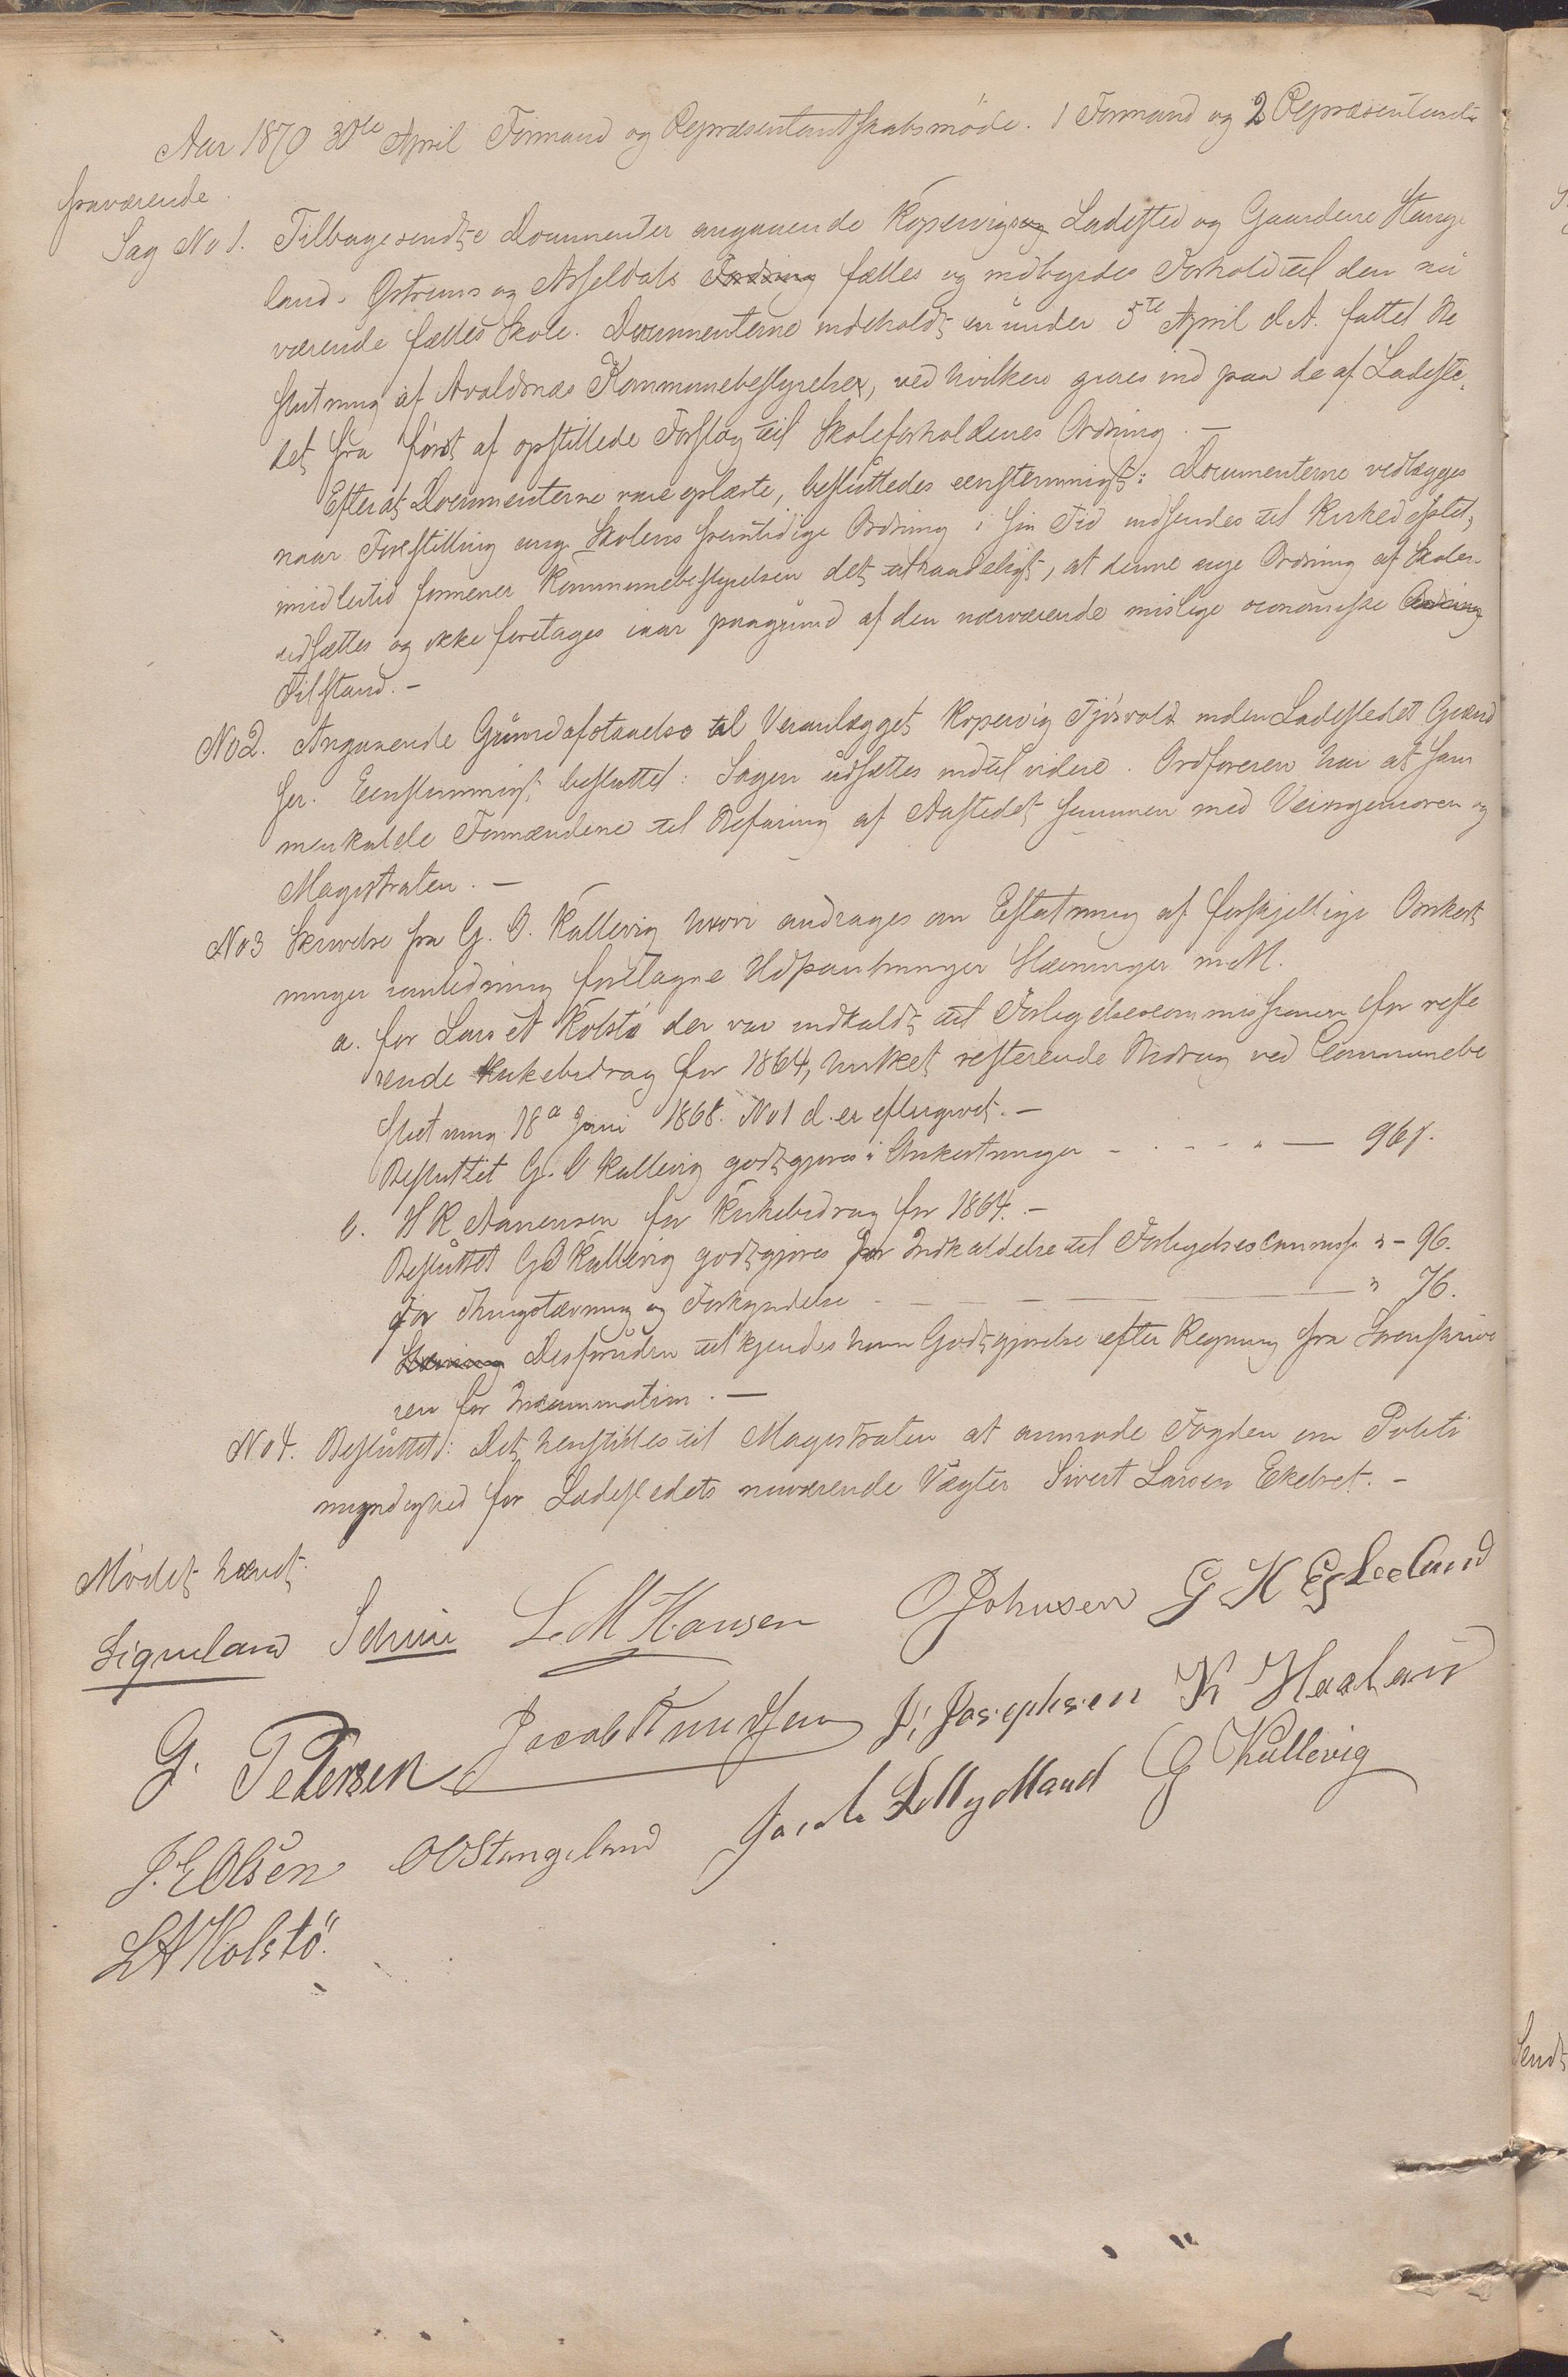 Aar 1870 30te April Formand og Repræsentantskabsmöde. 1 Formand og 2 Repræsentanter
fraværende.
Sag No 1. Tilbagesendte Documenter angaaende Kopervigs og Ladested og Gaardene Stange
land. Østrems og Akseldals Fordring fælles og indbyrdes Forhold til den nu
værende fælles Skole. Documenterne indeholdt en under 5te April d.A. fattet Be
slutning af Avaldsnæs Kommunebestyrelse, ved hvilken gaaes ind paa de af Ladeste
det fra först af opstillede Forslag til Skoleforholdenes Ordning. —
Efterat Documenterne vare oplæste, besluttedes eenstemmigt: Documenterne vedlægges
naar Forestilling ang. Skolens fremtidige Ordning i sin Tid indsendes til Kirkedeptet,
midlertid formener Kommunebestyrelsen det tilraadeligt, at denne nye Ordning af Skolen
udsættes og ikke foretages iaar paagrund af den nærværende mislige oconomiske
Tilstand. —
No 2. Angaaende Grundafstaaelse til Veianlægget Kopervig Tjösvold inden Ladestedet Grænd
ser. Eenstemmigt besluttet: Sagen udsættes indtil videre. Ordföreren har at sam
menkalde Formændene til Befaring af Aastedet sammen med Veiingeniøren og
Magistraten. —
No 3 Skrivelse fra G. O. Kallevig hvori andrages om Erstatning af forskjellige Omkost
ninger ianledning foretagne Udpantninger Stævninger m.M.
a. for Lars A Kolstö der var indkaldt til Forligelsescommissionen for reste
rende Kirkebidrag for 1864, hvilket resterende Bidrag ved Communebe
slutning 18de Juni 1868. No 1 d. er eftergivet. —
Besluttet G. O Kallevig godtgjøres i Omkostninger - - - - " — 96 s.
b. H R Aanensen for Kirkebidrag for 1864. —
Besluttet G O Kallevig godtgjøres for Indkaldelse til Forligelsescommiss " - 96.
For Thingstævning og Forkyndelse — — — " 76.
Stævning Desforuden tilkjendes ham Godtgjørelse efter Regning fra Sorenskrive
ren for Incammination. —
No 4. Besluttet: Det henstilles til Magistraten at anmode Fogden om Politi
myndighed for Ladestedets nuværende Vægter Sivert Larsen Ekebret. —
Mödet hævet.
Ligneland Schiui L. M Hansen O Johnsen G K Eskeland
G. Petersen Jacob Knudsen J. Josephsen K Haaland
J. E Olsen O O Stangeland Jacob L Mydland G Kallevig
L A Kolstö.
Sendt